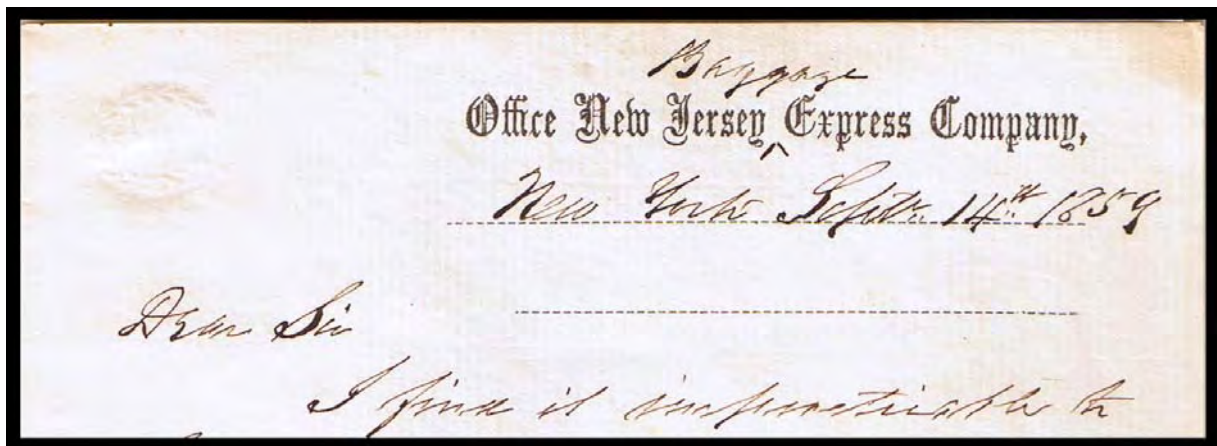 Baggage
Office New Jersey ‸ Express Company,
New York Septr. 14th 1859
Dear Sir
I find it impracticable to